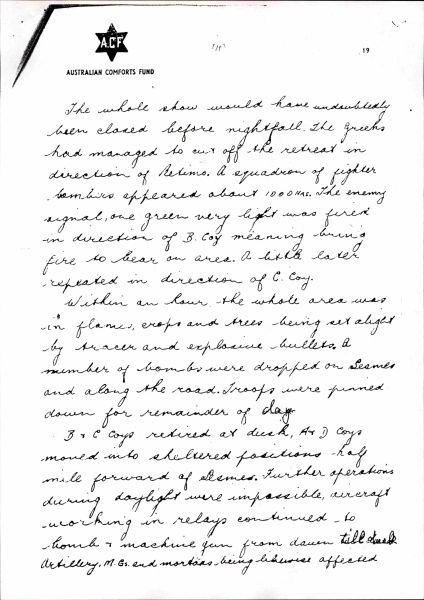 A.C.F
19
AUSTRALIAN COMFORTS FUND
The whole show would have undoubtedly
been closed before nightfall. The Greeks
had managed to cut off the retreat in
direction of Retimo. A squadron of fighter
bombers appeared about 1000 Hrs. The enemy
signal, one green very light was fired
in direction of B. Coy meaning bring
fire to bear on area. A little later
repeated in direction of C. Coy.
Within an hour the whole area was
in flames, crops and trees being set alight
by tracer and explosive bullets. A
number of bombs were dropped on Sesmes
and along the road. Troops were pinned
down for remainder of day.
B & C Coys retired at dusk, A & D Coys
moved into sheltered positions half
mile forward of Sesmes. Further operations
during daylight were impossible, aircraft
working in relays continued to
bomb & machine gun from dawn till dusk
Artillery, M.Gs. and mortars being likewise affected